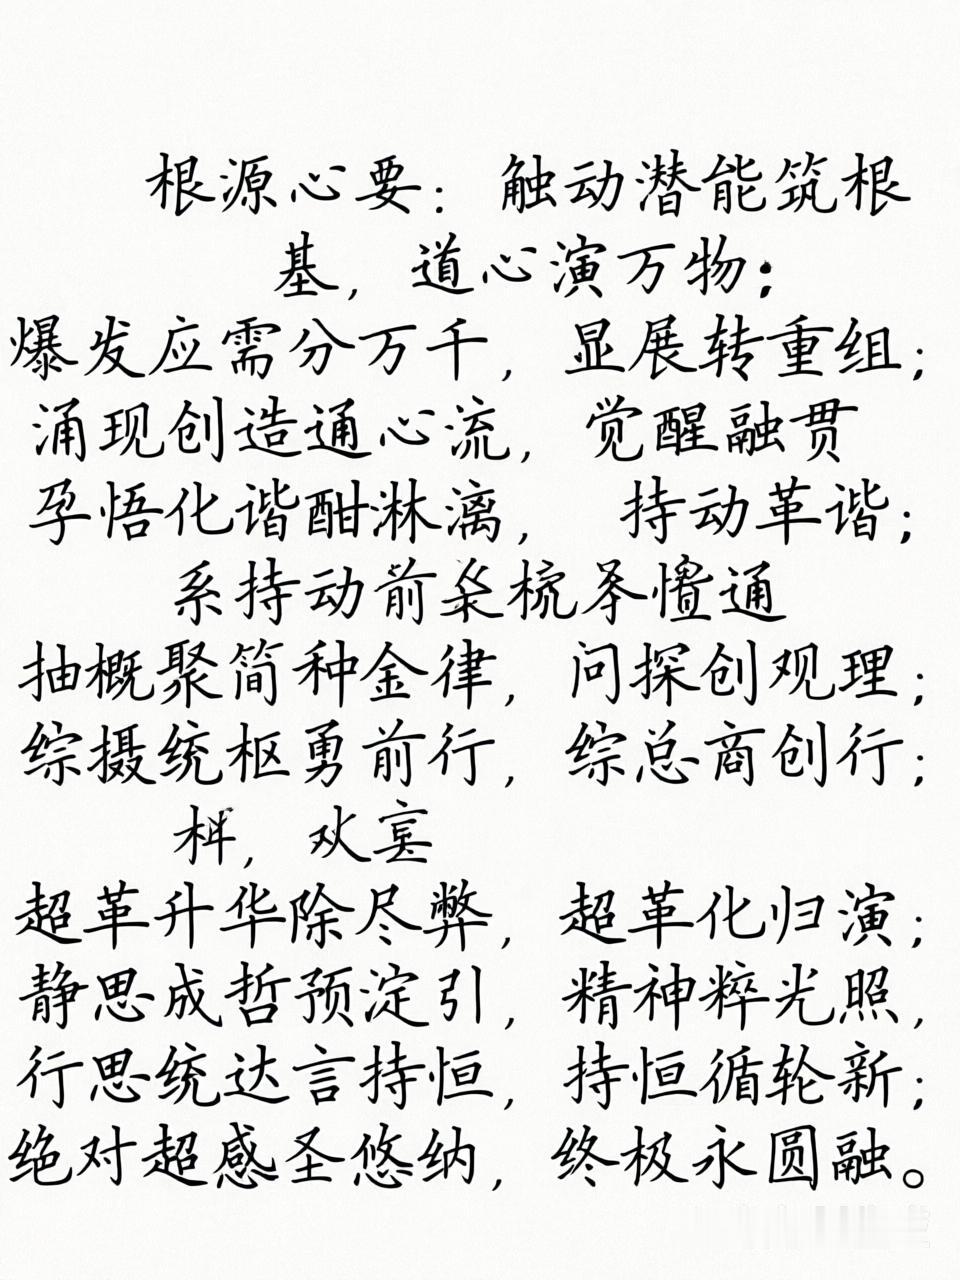 根源心要：触动潜能筑根
基，道心演万物；
爆发应需分万千，显展转重组；
涌现创造通心流，觉醒融贯
孕悟化谐酣淋漓，持动革谐；
系持动前
通
抽概聚简种金律，问探创观理；
综摄统枢勇前行，综总商创行；
超革升华除尽弊，超革化归演；
静思成哲预淀引，精神粹光照，
行思统达言持恒，持恒循轮新；
绝对超感圣悠纳，终极永圆融。